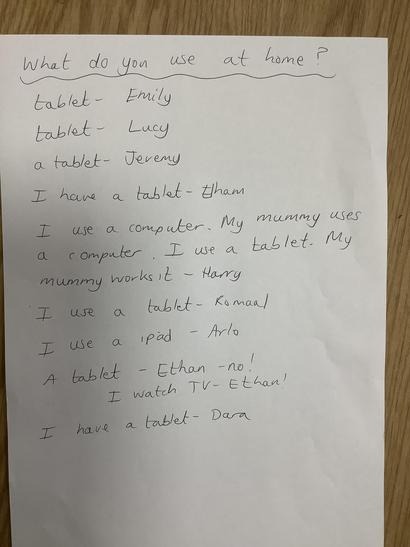 What do you use at home?
tablet - Emily
tablet - Lucy
a tablet - Jeremy
I have a tablet - Ethan
I use a computer. My mummy uses
a computer. I use a tablet. My
mummy works it - Harry
I use a tablet - Romaal
I use a ipad - Arlo
A tablet - Ethan - no!
I watch TV - Ethan!
I have a tablet - Dara